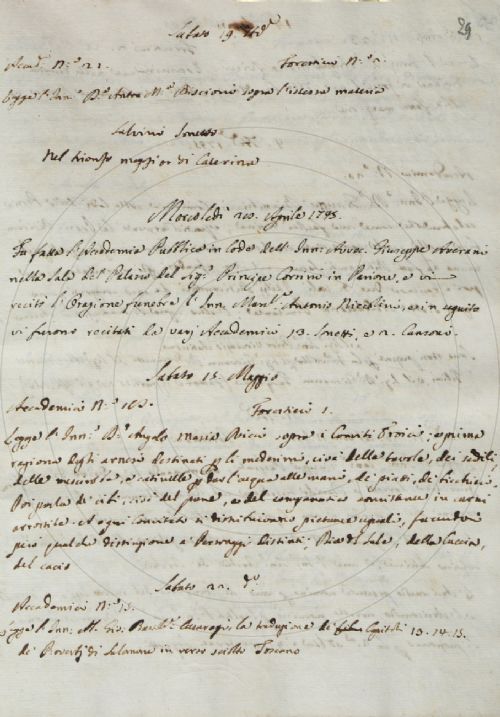 29
Sabato 19. d.º
Acad.ci N.º 21. Forestieri N.º 2.
Legge l'Inn.º D.r Anton M.ª Biscioni sopra l'istessa materia
Salvini Sonetto
Nel trionfo maggior di Caterina
Mercoledì 20. Aprile 1735.
Fu fatta l'Accademia Pubblica in lode dell'Inn. Avvoc. Giuseppe Averani
nella Sala del Palazzo del Sig.r Principe Corsini in Parione, e vi
recitò l'Orazione funebre l'Inn. March.e Antonio Niccolini, e in seguito
vi furono recitati da varj Accademici 13. Sonetti, e 2. Canzoni.
Sabato 15. Maggio
Accademici N.º Forestieri 1.
Legge l'Inn.º D.r Angelo Maria Ricci sopra i Conviti Eroici; e prima
ragiona degli arnesi destinati p li medesimi, cioè della tavola, dei sedili
della mescirola, e catinelle p dar l'acqua alle mani, de piatti, de bicchieri.
Poi parla di cibi, cioè del pane, e del companatico consistente in carni
arrostite. Ad ogni Convitato si distribuivano pietanze uguali, facendosi
però qualche distinzione a Personaggi distinti. del Sale, della Caccia,
del cacio
Sabato 22. d.º
Accademici N.º 15.
Legge l'Inn. Gio. la traduzione de Capitoli 13. 14. 15.
de Proverbj di Salomone in verso sciolto Toscano